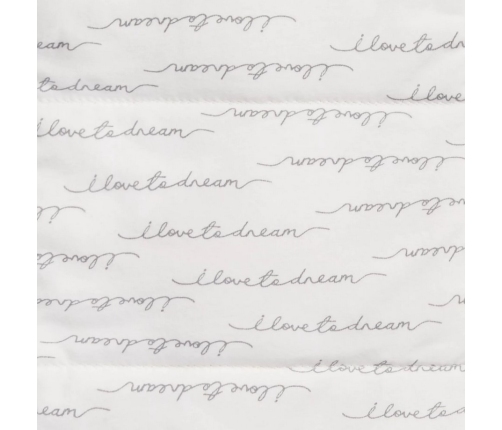 i love to dream
i love to dr
eam
i love to dream
to dream
i love
i love to dream
i love to dream
i love to dream
i love to dream
i love to dream
i love to dream
i love to dream
i love to dream
i love to dream
i love to dream
i love to dream
i love to dream
i love to dream
i love to dream
eam
i love to d